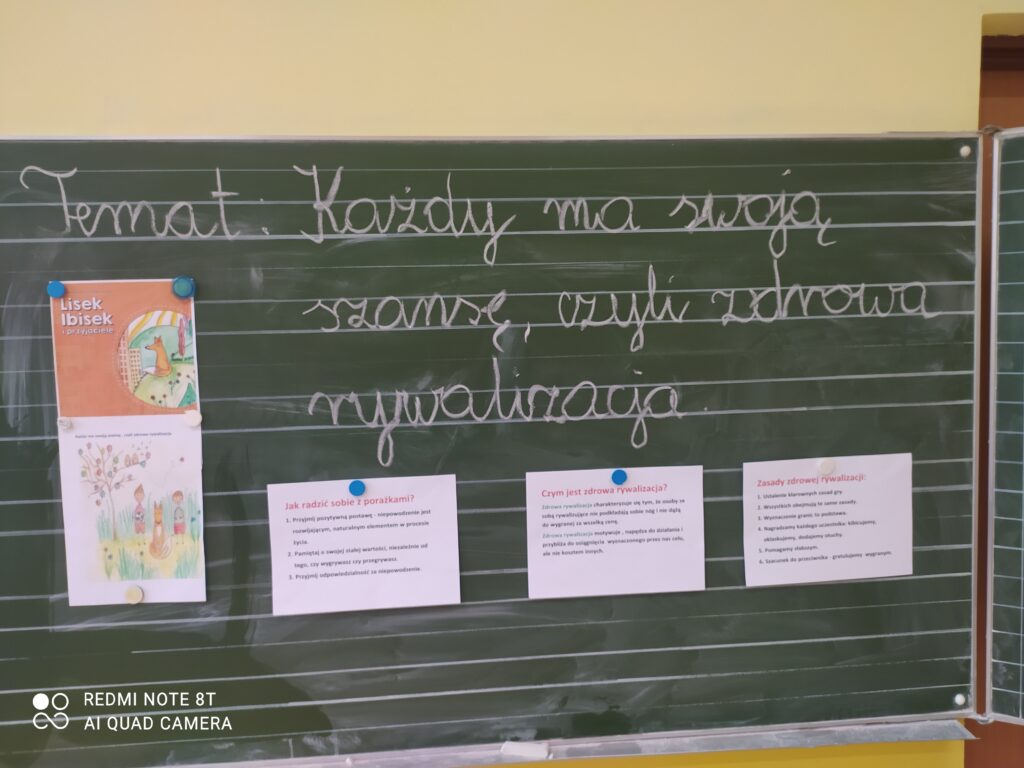 Temat: Każdy ma swoją
szansę, czyli zdrowa
rywalizacja.
Lisek
Ibisek
i przyjaciele
Każdy ma swoją szansę, czyli zdrowa rywalizacja
Jak radzić sobie z porażkami?
1. Przyjmij pozytywną postawę - niepowodzenie jest
rozwijającym, naturalnym elementem w procesie
życia.
2. Pamiętaj o swojej stałej wartości, niezależnie od
tego, czy wygrywasz czy przegrywasz.
3. Przyjmij odpowiedzialność za niepowodzenie.
Czym jest zdrowa rywalizacja?
Zdrowa rywalizacja charakteryzuje się tym, że osoby ze
sobą rywalizujące nie podkładają sobie nóg i nie dążą
do wygranej za wszelką cenę.
Zdrowa rywalizacja motywuje , napędza do działania i
przybliża do osiągnięcia wyznaczonego przez nas celu,
ale nie kosztem innych.
Zasady zdrowej rywalizacji:
1. Ustalenie klarownych zasad gry.
2. Wszystkich obejmują te same zasady.
3. Wyznaczenie granic to podstawa.
4. Nagradzamy każdego uczestnika: kibicujemy,
oklaskujemy, dodajemy otuchy.
5. Pomagamy słabszym.
6. Szacunek do przeciwnika - gratulujemy wygranym.
REDMI NOTE 8T
AI QUAD CAMERA